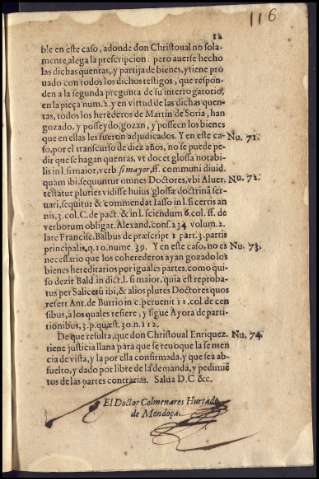 116
12
ble en este caso, adonde don Christoual no sola-
mente alega la prescripcion: pero auerse hecho
las dichas quentas, y partija de bienes, y tiene pro
uado con todos los dichos testigos, que respon-
den a la segunda pregunta de su interrogatorio,
en la pieça num. 2. y en virtud de las dichas quen-
tas, todos los herederos de Martin de Soria, han
gozado, y posseydo, gozan, y posseen los bienes
que en ellas les fueron adjudicados. Y en este ca-
so, por el transcurso de diez años, no se puede pe-
dir que se hagan quentas, vt docet glossa notabi-
lis in l. si maior, verb. si mayor, ff. communi diuid.
quam ibi sequuntur omnes Doctores, vbi Aluer.
testatur pluries vidisse huius glossæ doctrinã ser-
uari, sequitur & commendat Iasso in l. si certis an
nis, 3. col. C. de pact. & in l. sciendum 6. col. ff. de
verborum obligat. Alexand. cons. 234. volum. 2.
late Francisc. Balbus de præscript. 2 part. 3. partis
principalis, q. 10. nume. 39. Y en este caso, no es
necessario que los coherederos ayan gozado los
bienes hereditarios por iguales partes, como qui-
so dezir Bald. in dict. l. si maior, quia est reproba-
tus per Salicet. ibi, & alios plures Doctores quos
refert Ant. de Burrio in c. peruenit 11. col. de cen
sibus, a los quales refiere, y sigue Ayora de parti-
tionibus, 3. p. quæst. 30. n. 112.
De que resulta, que don Christoual Enriquez
tiene justicia llana para que se reuoque la senten
cia de vista, y la por ella confirmada, y que sea ab-
suelto, y dado por libre de la demanda, y pedimiẽ
tos de las partes contrarias. Salua D. C &c.
Nu. 71.
Nu. 72.
Nu. 73.
Nu. 74.
El Doctor Colmenares Hurtado
de Mendoça.